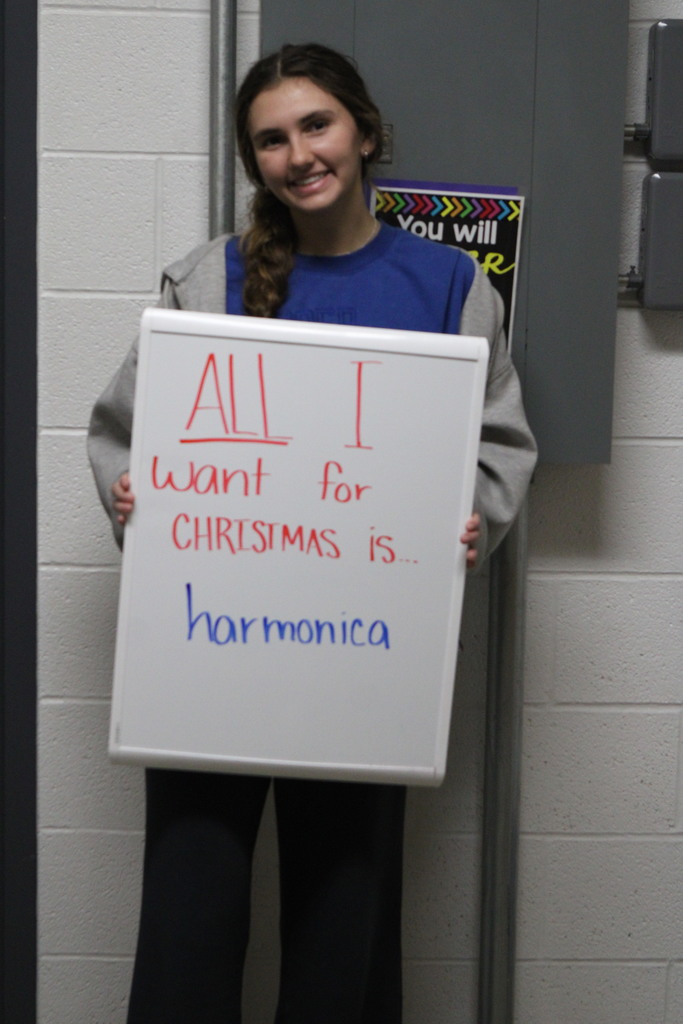 You will
ALL I
want for
CHRISTMAS is...
harmonica